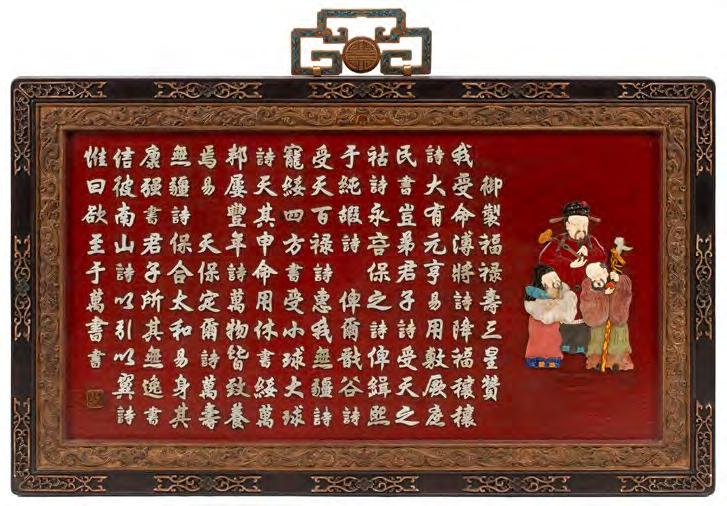 御製福祿壽三星贊
我受命溥將詩降福穰穰
詩大有元亨易用敷厥庶
民書豈弟君子詩受天之
祜詩永言保之詩俾緝熙
于純嘏詩 俾爾戩谷詩
受天百祿詩惠我無疆詩
寵綏四方書受小球大球
詩天其申命用休書綏萬
邦屢豐年詩萬物皆致養
焉易 天保定爾詩萬壽
無疆詩保合太和易身其
康强書君子所其無逸書
信彼南山詩以引以翼詩
惟曰欲至于萬書書